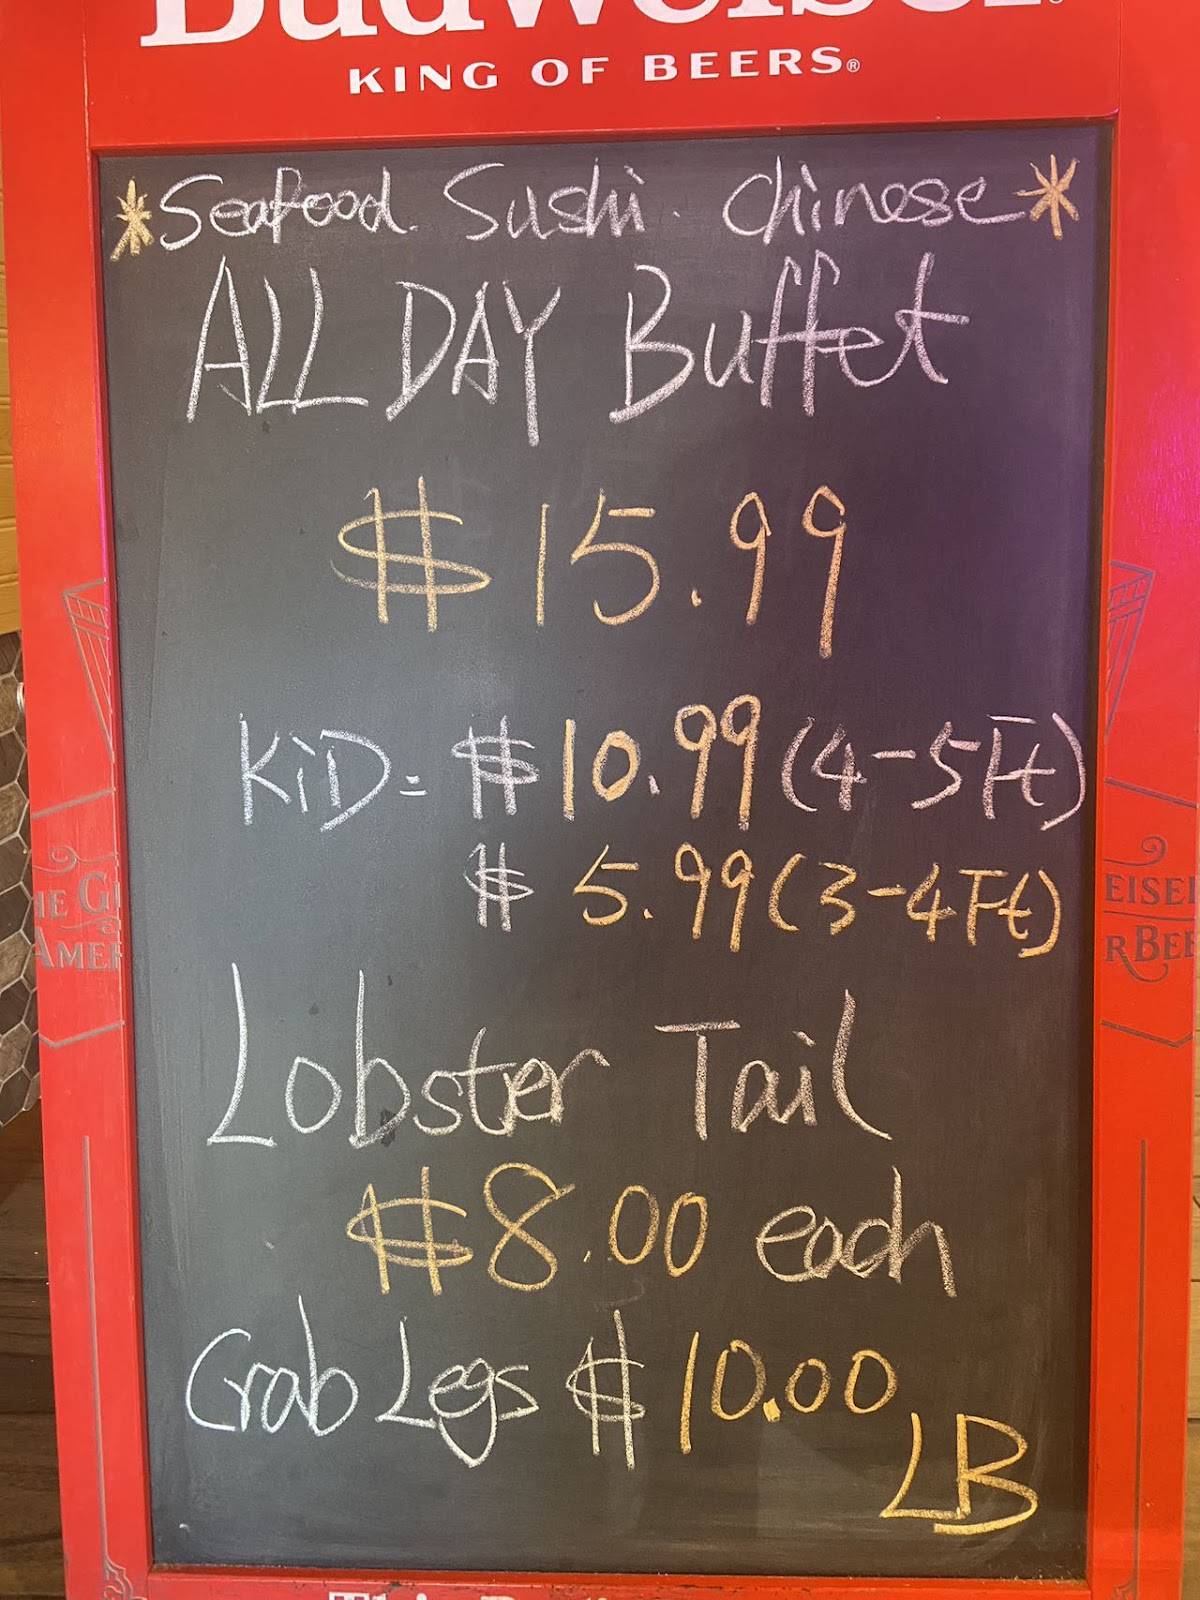 Budweiser®
KING OF BEERS®
*Seafood. Sushi. Chinese*
ALL DAY Buffet
$15.99
KiD = $10.99 (4-5Ft)
$ 5.99 (3-4Ft)
HE G
AMER
EISER
R BEE
Lobster Tail
$8.00 each
Crab Legs $10.00
LB